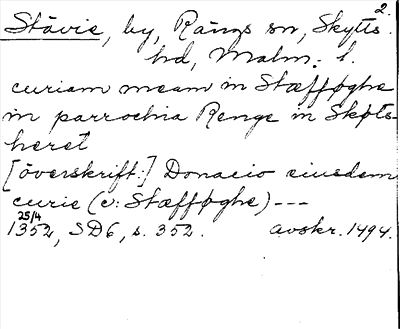 2.
Stävie, by, Rängs sn, Skytts
hd, Malm. l.
curiam meam in Stæfføghe
in parrochia Renge in Skøts-
heret
[överskrift:] Donacio eiusdem
curie (ɔ: Stæfføghe) ---
25/4
1352, SD6, s. 352. avskr. 1494.